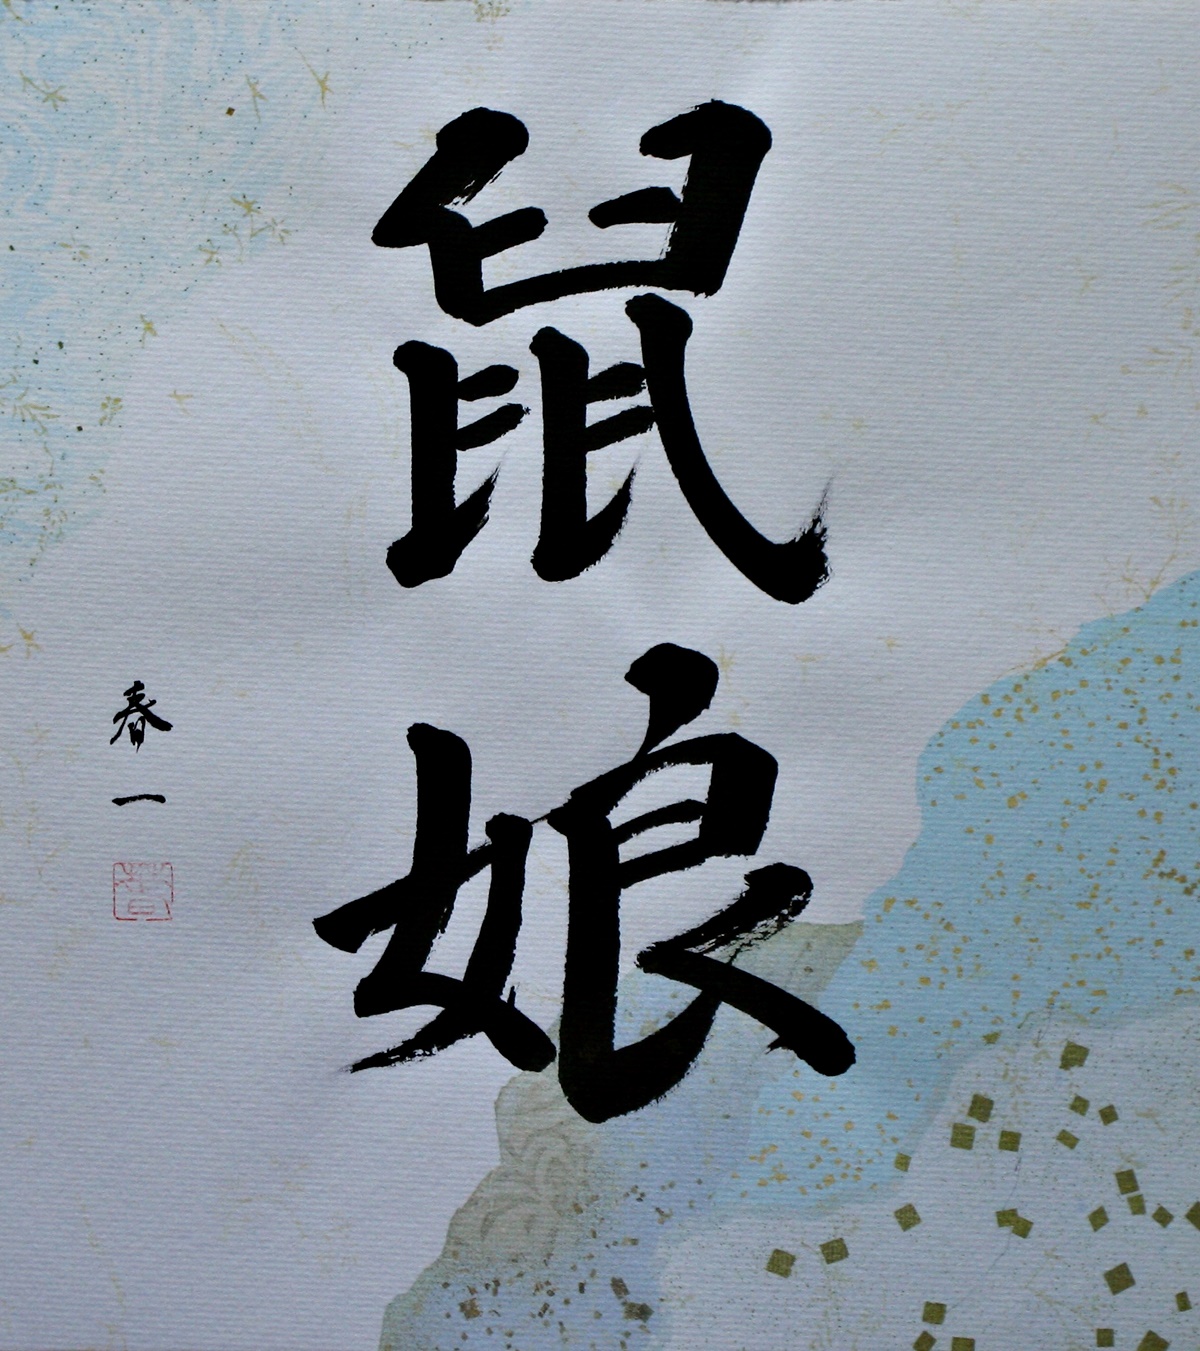 鼠娘
春一